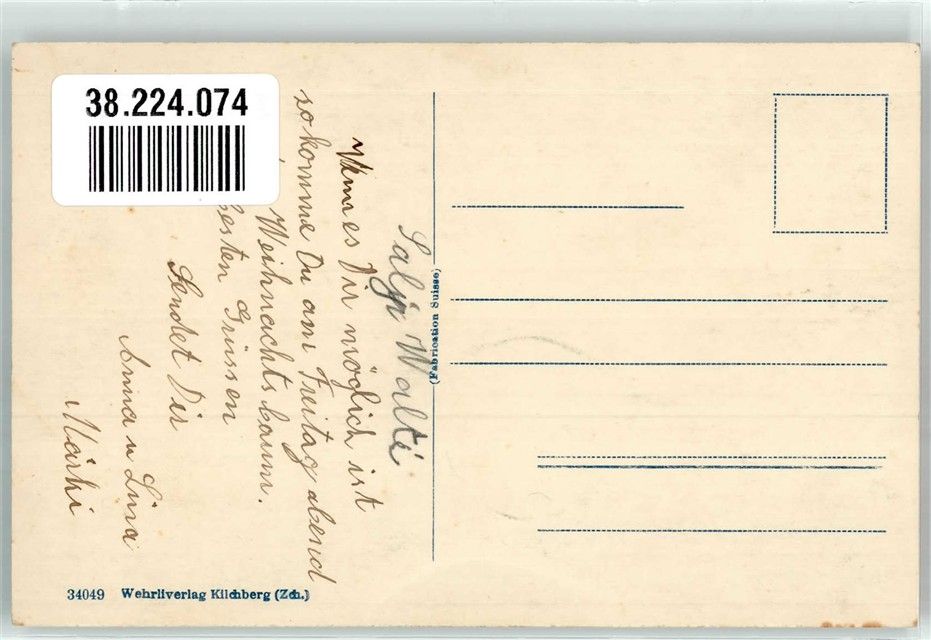 38.224.074
Salje Walti
Wenn es Dir möglich ist
so komme Du am Freitag abend
Weihnachtsbaum.
besten Grüssen
Sendet Dir
Anna u Lina
Märki
(Fabrication Suisse)
34049 Wehrliverlag Kilchberg (Zch.)